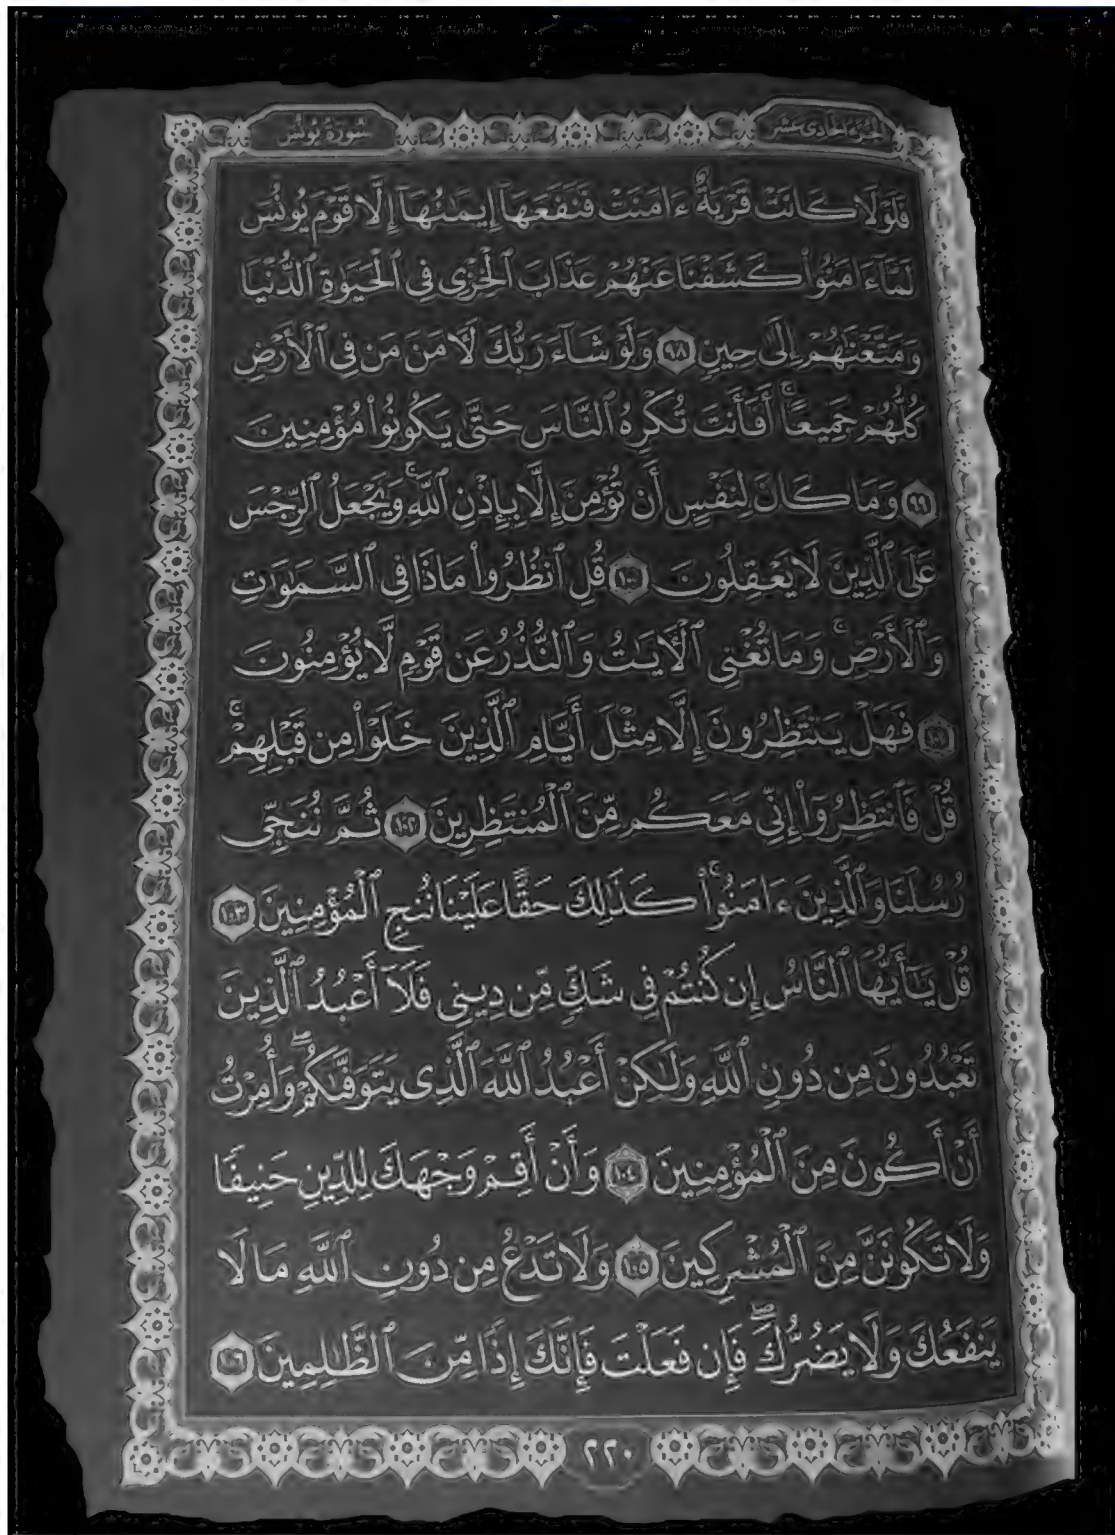 الجزء الحادي عشر
سورة يونس
فَلَوْلَا كَانَتْ قَرْيَةٌ ءَامَنَتْ فَنَفَعَهَآ إِيمَـٰنُهَآ إِلَّا قَوْمَ يُونُسَ
لَمَّآ ءَامَنُوا۟ كَشَفْنَا عَنْهُمْ عَذَابَ ٱلْخِزْىِ فِى ٱلْحَيَوٰةِ ٱلدُّنْيَا
وَمَتَّعْنَـٰهُمْ إِلَىٰ حِينٍ ٩٨ وَلَوْ شَآءَ رَبُّكَ لَـَٔامَنَ مَن فِى ٱلْأَرْضِ
كُلُّهُمْ جَمِيعًا ۚ أَفَأَنتَ تُكْرِهُ ٱلنَّاسَ حَتَّىٰ يَكُونُوا۟ مُؤْمِنِينَ
٩٩ وَمَا كَانَ لِنَفْسٍ أَن تُؤْمِنَ إِلَّا بِإِذْنِ ٱللَّهِ ۚ وَيَجْعَلُ ٱلرِّجْسَ
عَلَى ٱلَّذِينَ لَا يَعْقِلُونَ ١٠٠ قُلِ ٱنظُرُوا۟ مَاذَا فِى ٱلسَّمَـٰوَٰتِ
وَٱلْأَرْضِ ۚ وَمَا تُغْنِى ٱلْـَٔايَـٰتُ وَٱلنُّذُرُ عَن قَوْمٍ لَّا يُؤْمِنُونَ
١٠١ فَهَلْ يَنتَظِرُونَ إِلَّا مِثْلَ أَيَّامِ ٱلَّذِينَ خَلَوْا۟ مِن قَبْلِهِمْ ۚ
قُلْ فَٱنتَظِرُوٓا۟ إِنِّى مَعَكُم مِّنَ ٱلْمُنتَظِرِينَ ١٠٢ ثُمَّ نُنَجِّى
رُسُلَنَا وَٱلَّذِينَ ءَامَنُوا۟ ۚ كَذَٰلِكَ حَقًّا عَلَيْنَا نُنجِ ٱلْمُؤْمِنِينَ ١٠٣
قُلْ يَـٰٓأَيُّهَا ٱلنَّاسُ إِن كُنتُمْ فِى شَكٍّ مِّن دِينِى فَلَآ أَعْبُدُ ٱلَّذِينَ
تَعْبُدُونَ مِن دُونِ ٱللَّهِ وَلَـٰكِنْ أَعْبُدُ ٱللَّهَ ٱلَّذِى يَتَوَفَّىٰكُمْ ۖ وَأُمِرْتُ
أَنْ أَكُونَ مِنَ ٱلْمُؤْمِنِينَ ١٠٤ وَأَنْ أَقِمْ وَجْهَكَ لِلدِّينِ حَنِيفًا
وَلَا تَكُونَنَّ مِنَ ٱلْمُشْرِكِينَ ١٠٥ وَلَا تَدْعُ مِن دُونِ ٱللَّهِ مَا لَا
يَنفَعُكَ وَلَا يَضُرُّكَ ۖ فَإِن فَعَلْتَ فَإِنَّكَ إِذًا مِّنَ ٱلظَّـٰلِمِينَ ١٠٦
٢٢٠